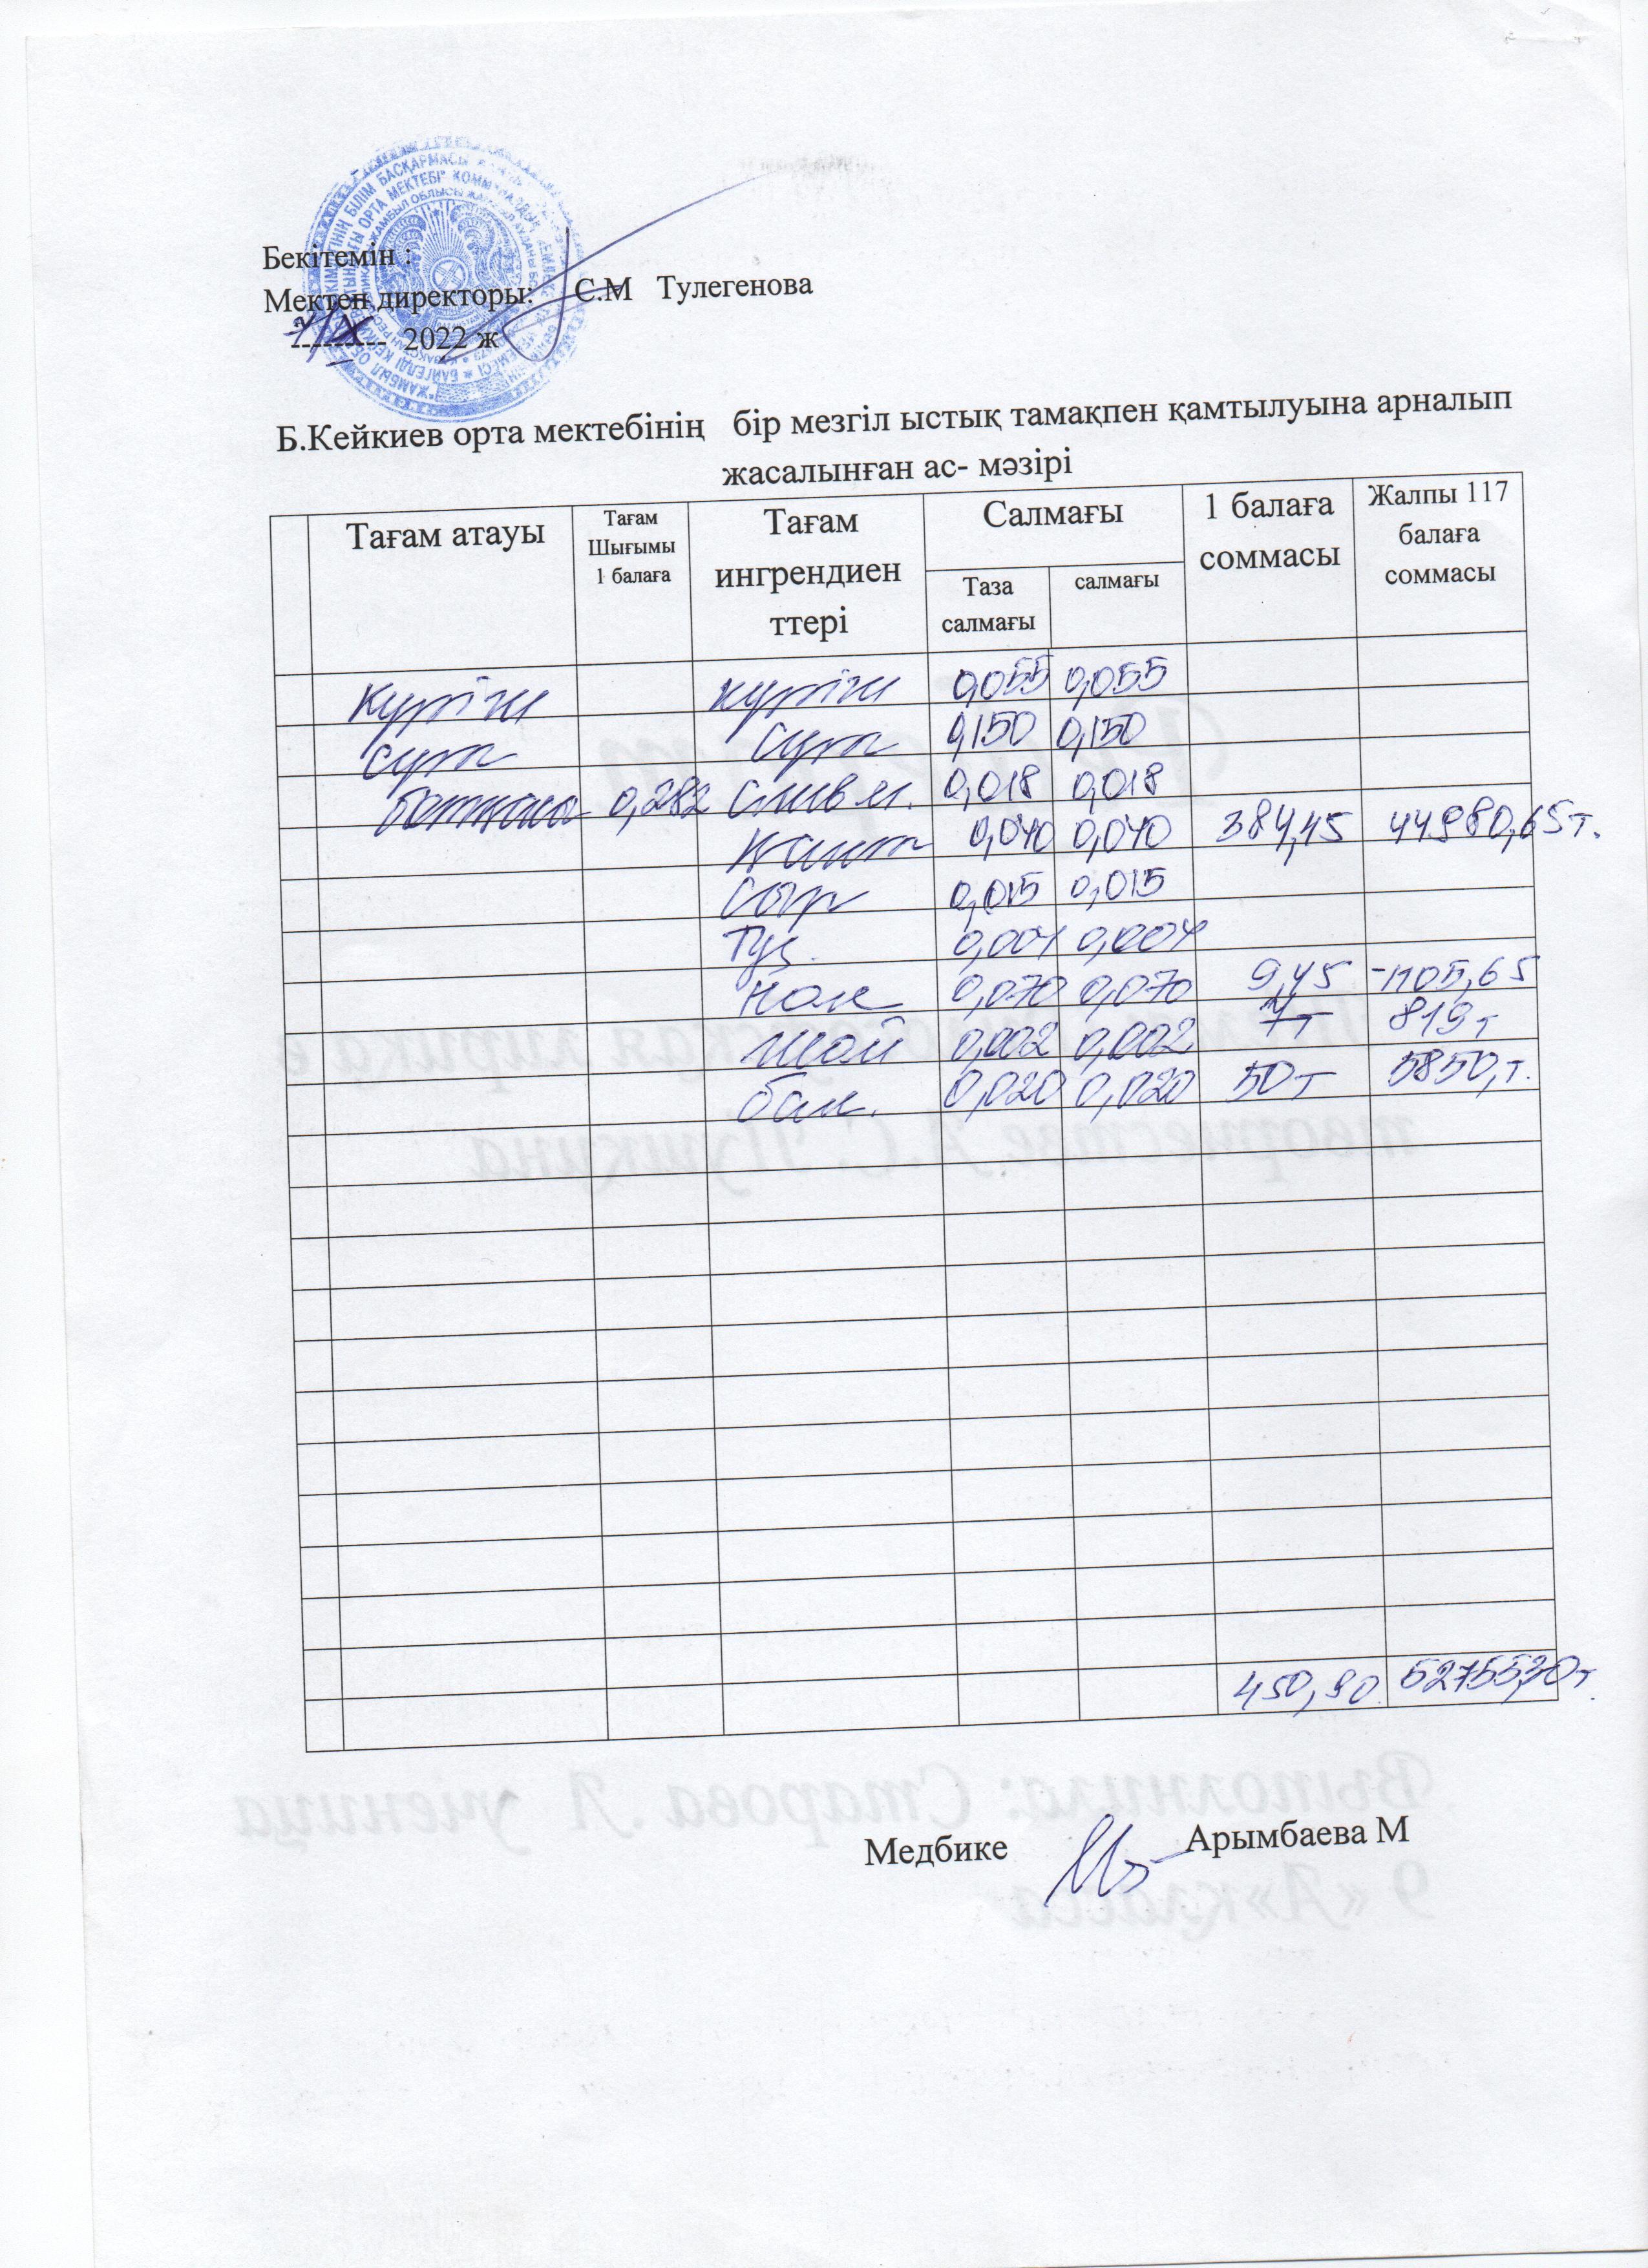 Бекітемін :
Мектеп директоры: С.М Тулегенова
---------- 2022 ж
Б.Кейкиев орта мектебінің бір мезгіл ыстық тамақпен қамтылуына арналып
жасалынған ас- мәзірі
Тағам атауы
Тағам
Шығымы
1 балаға
Тағам
ингрендиен
ттері
Салмағы
Таза
салмағы
салмағы
1 балаға
соммасы
Жалпы 117
балаға
соммасы
күріш күріш 0,055 0,055
сүт сүт 0,150 0,150
ботқасы 0,282 слив м. 0,018 0,018
қант 0,040 0,040 384,45 44980,65 т.
сыр 0,015 0,015
Тұз. 0,004 0,004
Нан 0,070 0,070 9,45 -1105,65
шай 0,002 0,002 7т 819 т
бал. 0,020 0,020 50 т 5850, т.
450,90. 52755,30т.
Медбике Арымбаева М